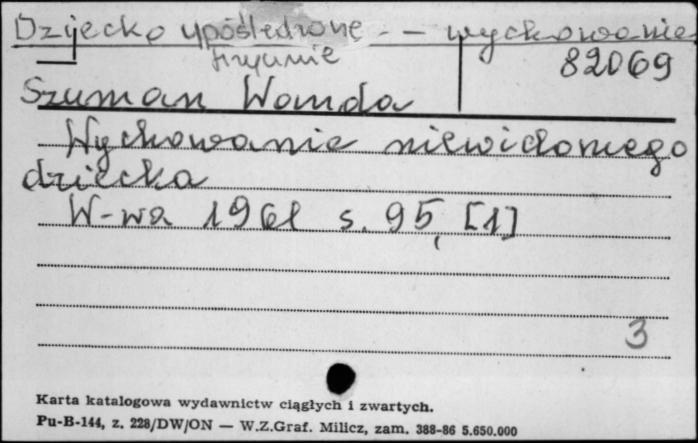 Dziecko upośledzone - - wychowanie
fizycznie
82069
Szuman Wanda
Wychowanie niewidomego
dziecka
W-wa 1961 s. 95, [1]
3
Karta katalogowa wydawnictw ciągłych i zwartych.
Pu-B-144, z. 228/DW/ON — W.Z.Graf. Milicz, zam. 388-86 5.650.000